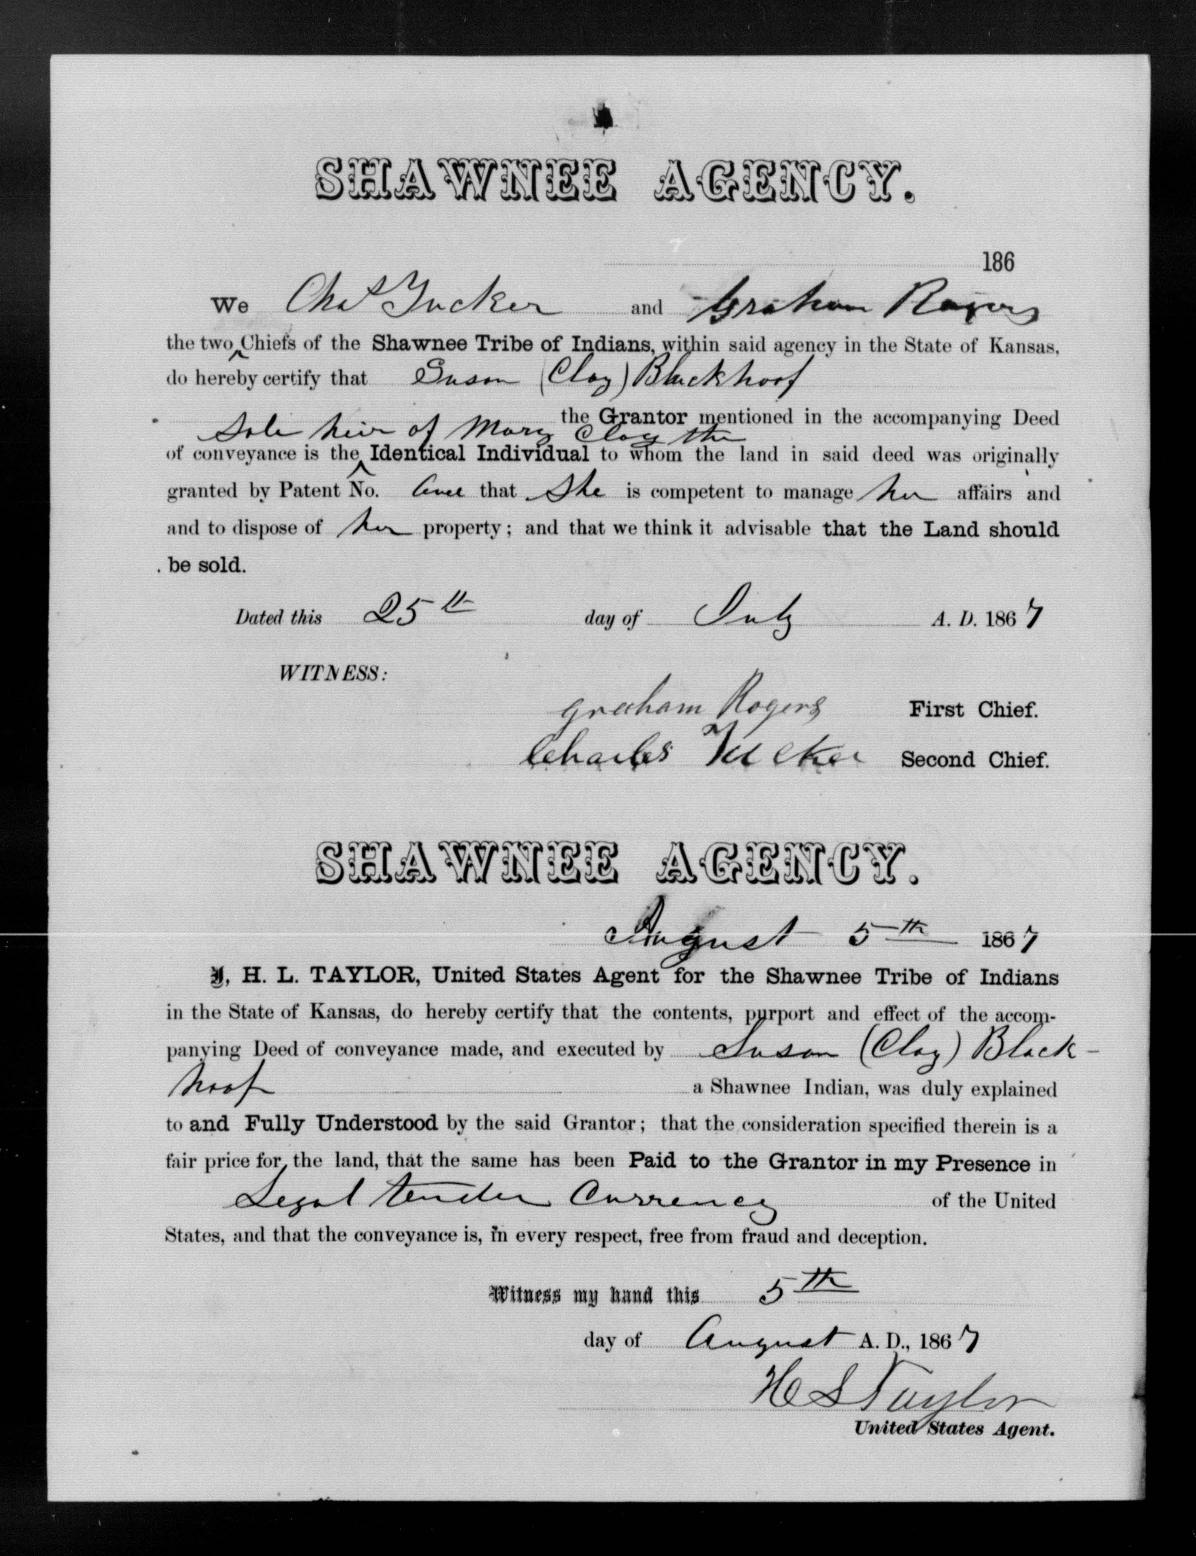 SHAWNEE AGENCY.
186
We Chas Tucker and Graham Rogers
the two ^ Chiefs of the Shawnee Tribe of Indians, within said agency in the State of Kansas,
do hereby certify that Susan (Clay) Blackhoof
the Grantor mentioned in the accompanying Deed
sole heir of Mary Clay the
of conveyance is the ^ Identical Individual to whom the land in said deed was originally
granted by Patent No. and that She is competent to manage her affairs and
and to dispose of her property; and that we think it advisable that the Land should
be sold.
Dated this 25th day of July A. D. 1867
WITNESS:
Graham Rogers First Chief.
Charles Tucker Second Chief.
SHAWNEE AGENCY.
August 5th 1867
I, H. L. TAYLOR, United States Agent for the Shawnee Tribe of Indians
in the State of Kansas, do hereby certify that the contents, purport and effect of the accom-
panying Deed of conveyance made, and executed by Susan (Clay) Black-
hoof a Shawnee Indian, was duly explained
to and Fully Understood by the said Grantor; that the consideration specified therein is a
fair price for the land, that the same has been Paid to the Grantor in my Presence in
Legal tender Currency of the United
States, and that the conveyance is, in every respect, free from fraud and deception.
Witness my hand this 5th
day of August A. D., 1867
H L Taylor
United States Agent.